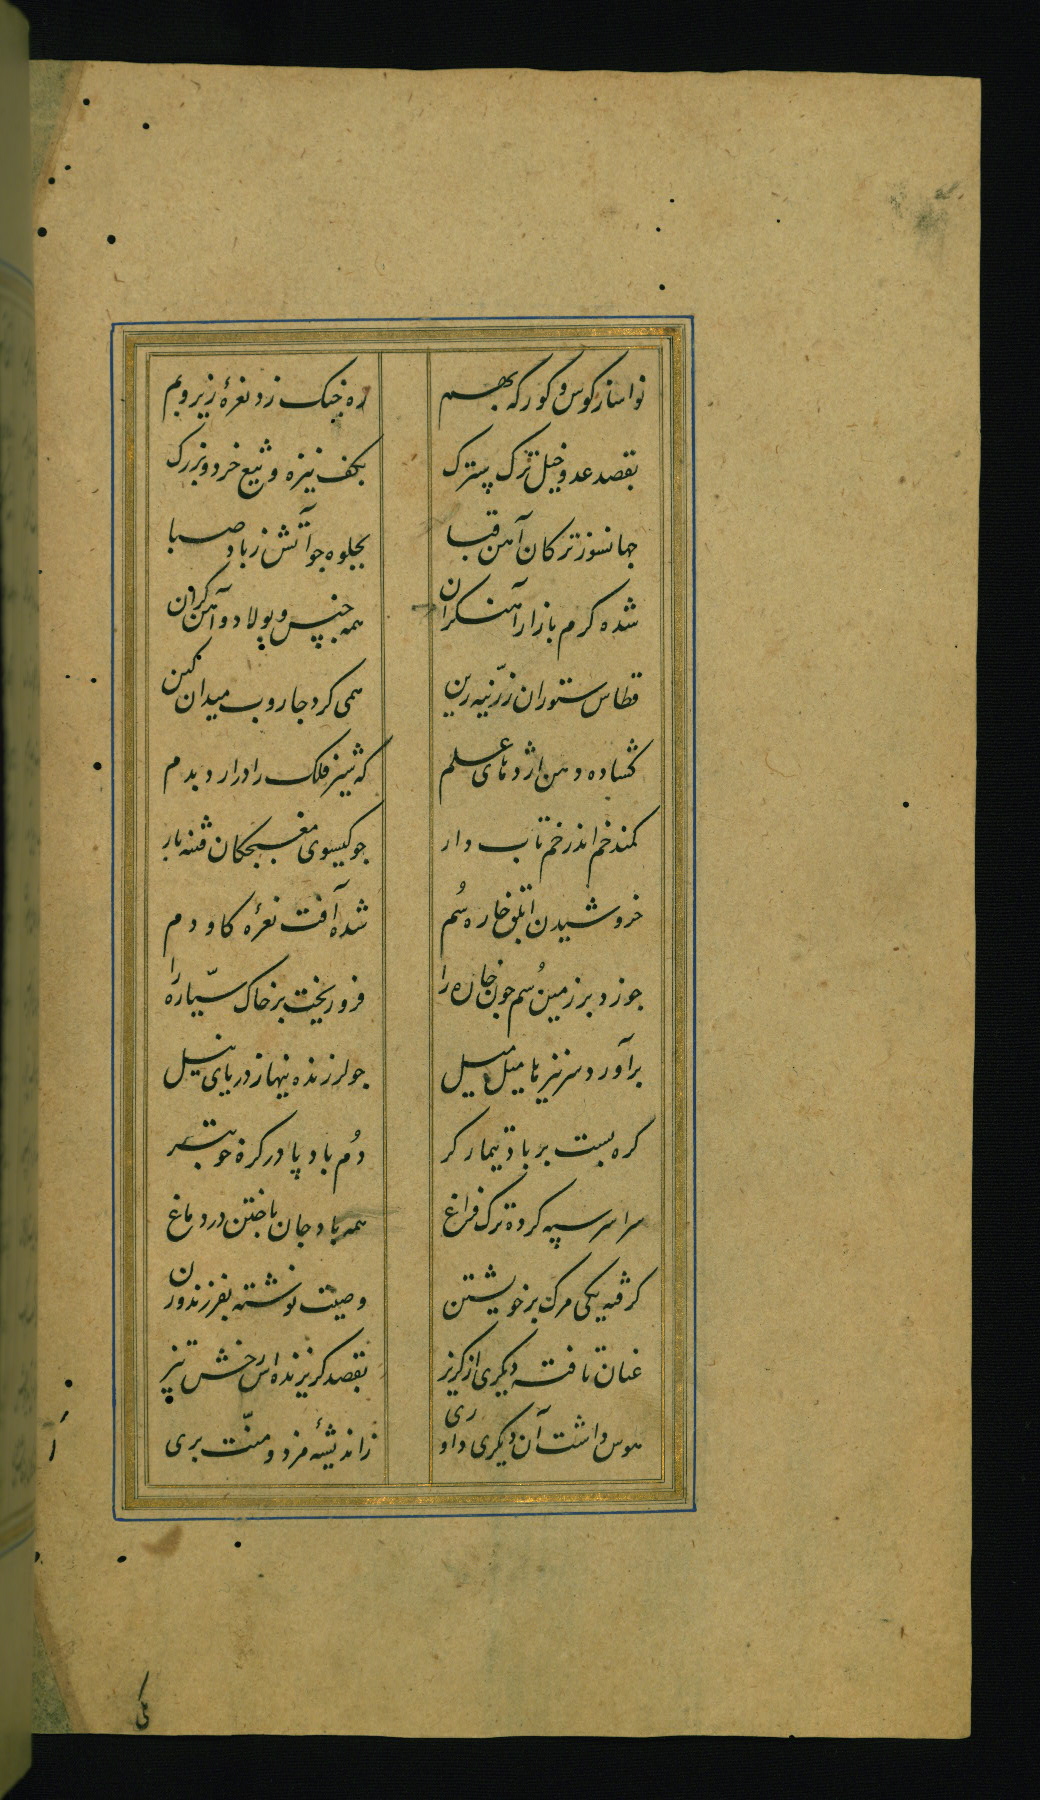 نواساز کوس و کورکه بهم ره جنک زد نغرهٔ زیر و بم
بقصد عدو خیل ترک سترک بکف نیزه و تیغ خرد و بزرک
جهانسوز ترکان آهن قبا بجلوه جو آتش ز باد صبا
شده کرم بازار آهنکران همه جنس پولاد و آهن کران
قطاس ستوران زرینه زین همی کرد جاروب میدان کین
کشاده دهن اژدهای علم که شیر فلک را درارد بدم
کمند خم اندر خم تاب دار جو کیسوی مغبجکان فتنه بار
خروشیدن ابلق خاره سُم شده آفت نعرهٔ کاودم
جو زد بر زمین سُم جون خاره را فرو ریخت بر خاک سیّاره را
برآورد سر نیزها میل میل جو لرزنده نیها ز دریای نیل
کره بست بر باد تیمار کر دُم بادپا در کره خوبتر
سراسر سپه کرده ترک فراغ همه باد جان باختن در دماغ
کرفته یکی مرک بر خویشتن وصیت نوشته بفرزند و زن
عنان تافته دیکری از کریز بقصد کریزنده‌اش رخش تیز
هوس داشت آن دیکری داوری ز اندیشهٔ مزد و منّت بری
یکی